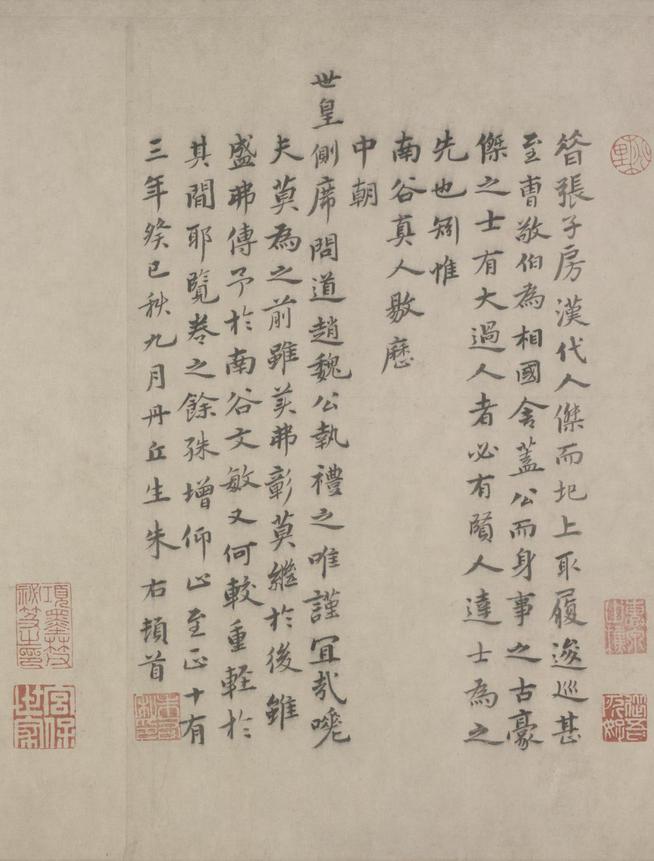 昔張子房漢代人傑而圯上取履逡巡甚
至曹敬伯為相國舍蓋公而身事之古豪
傑之士有大過人者必有賢人達士為之
先也矧惟
南谷真人敭歷
中朝
世皇側席問道趙魏公執禮之唯謹冝哉嗟
夫莫為之前雖美弗彰莫繼於後雖
盛弗傳予於南谷文敏又何較重輕於
其間耶覽卷之餘殊增仰止至正十有
三年癸巳秋九月丹丘生朱右頓首
項墨林父祕笈之印
宮保世家